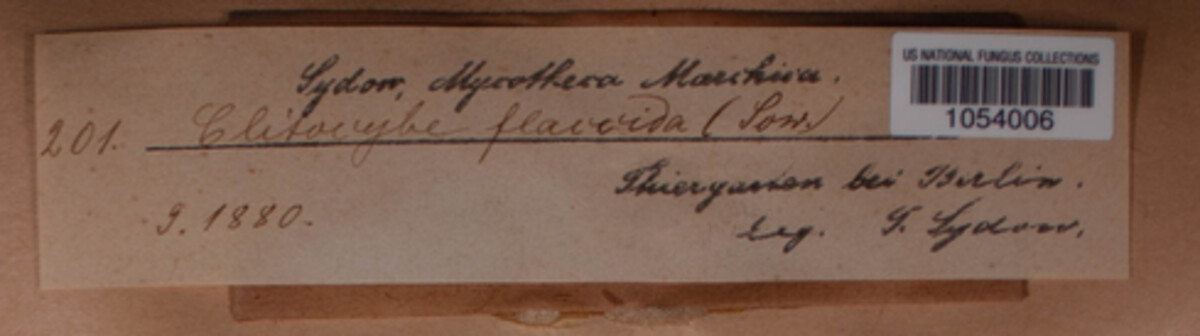 US NATIONAL FUNGUS COLLECTIONS
1054006
Sydow, Mycotheca Marchica.
201. Clitocybe flaccida (Sow.)
Thiergarten bei Berlin.
9. 1880.
leg. P. Sydow.